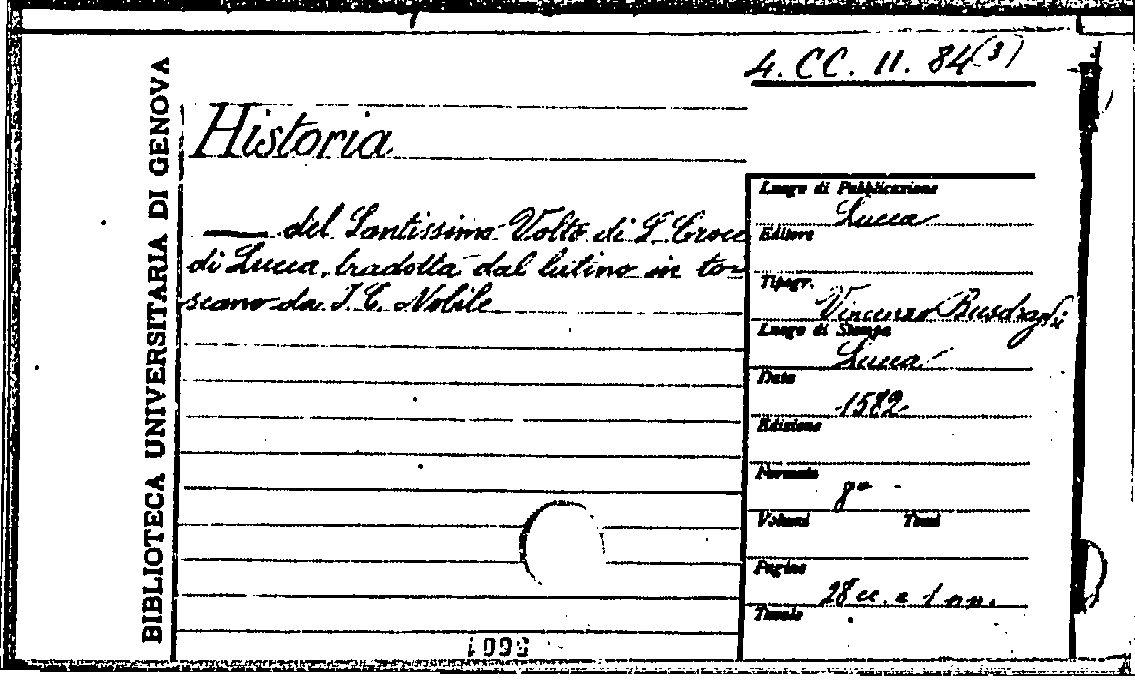 4. CC. II. 84(3)
BIBLIOTECA UNIVERSITARIA DI GENOVA
Historia
—— del Santissimo Volto di S. Croce
di Lucca, tradotta dal latino in to=
scano da J. C. Nobile
Luogo di Pubblicazione
Lucca
Editore
Tipogr.
Vincenzo Busdraghi
Luogo di Stampa
Lucca
Data
1582
Edizione
Formato
8°
Volumi Tomi
Pagine
28 cc. e 1 nn.
Tavole
1096